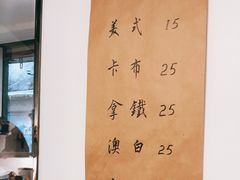 美式 15
卡布 25
拿鐵 25
澳白 25